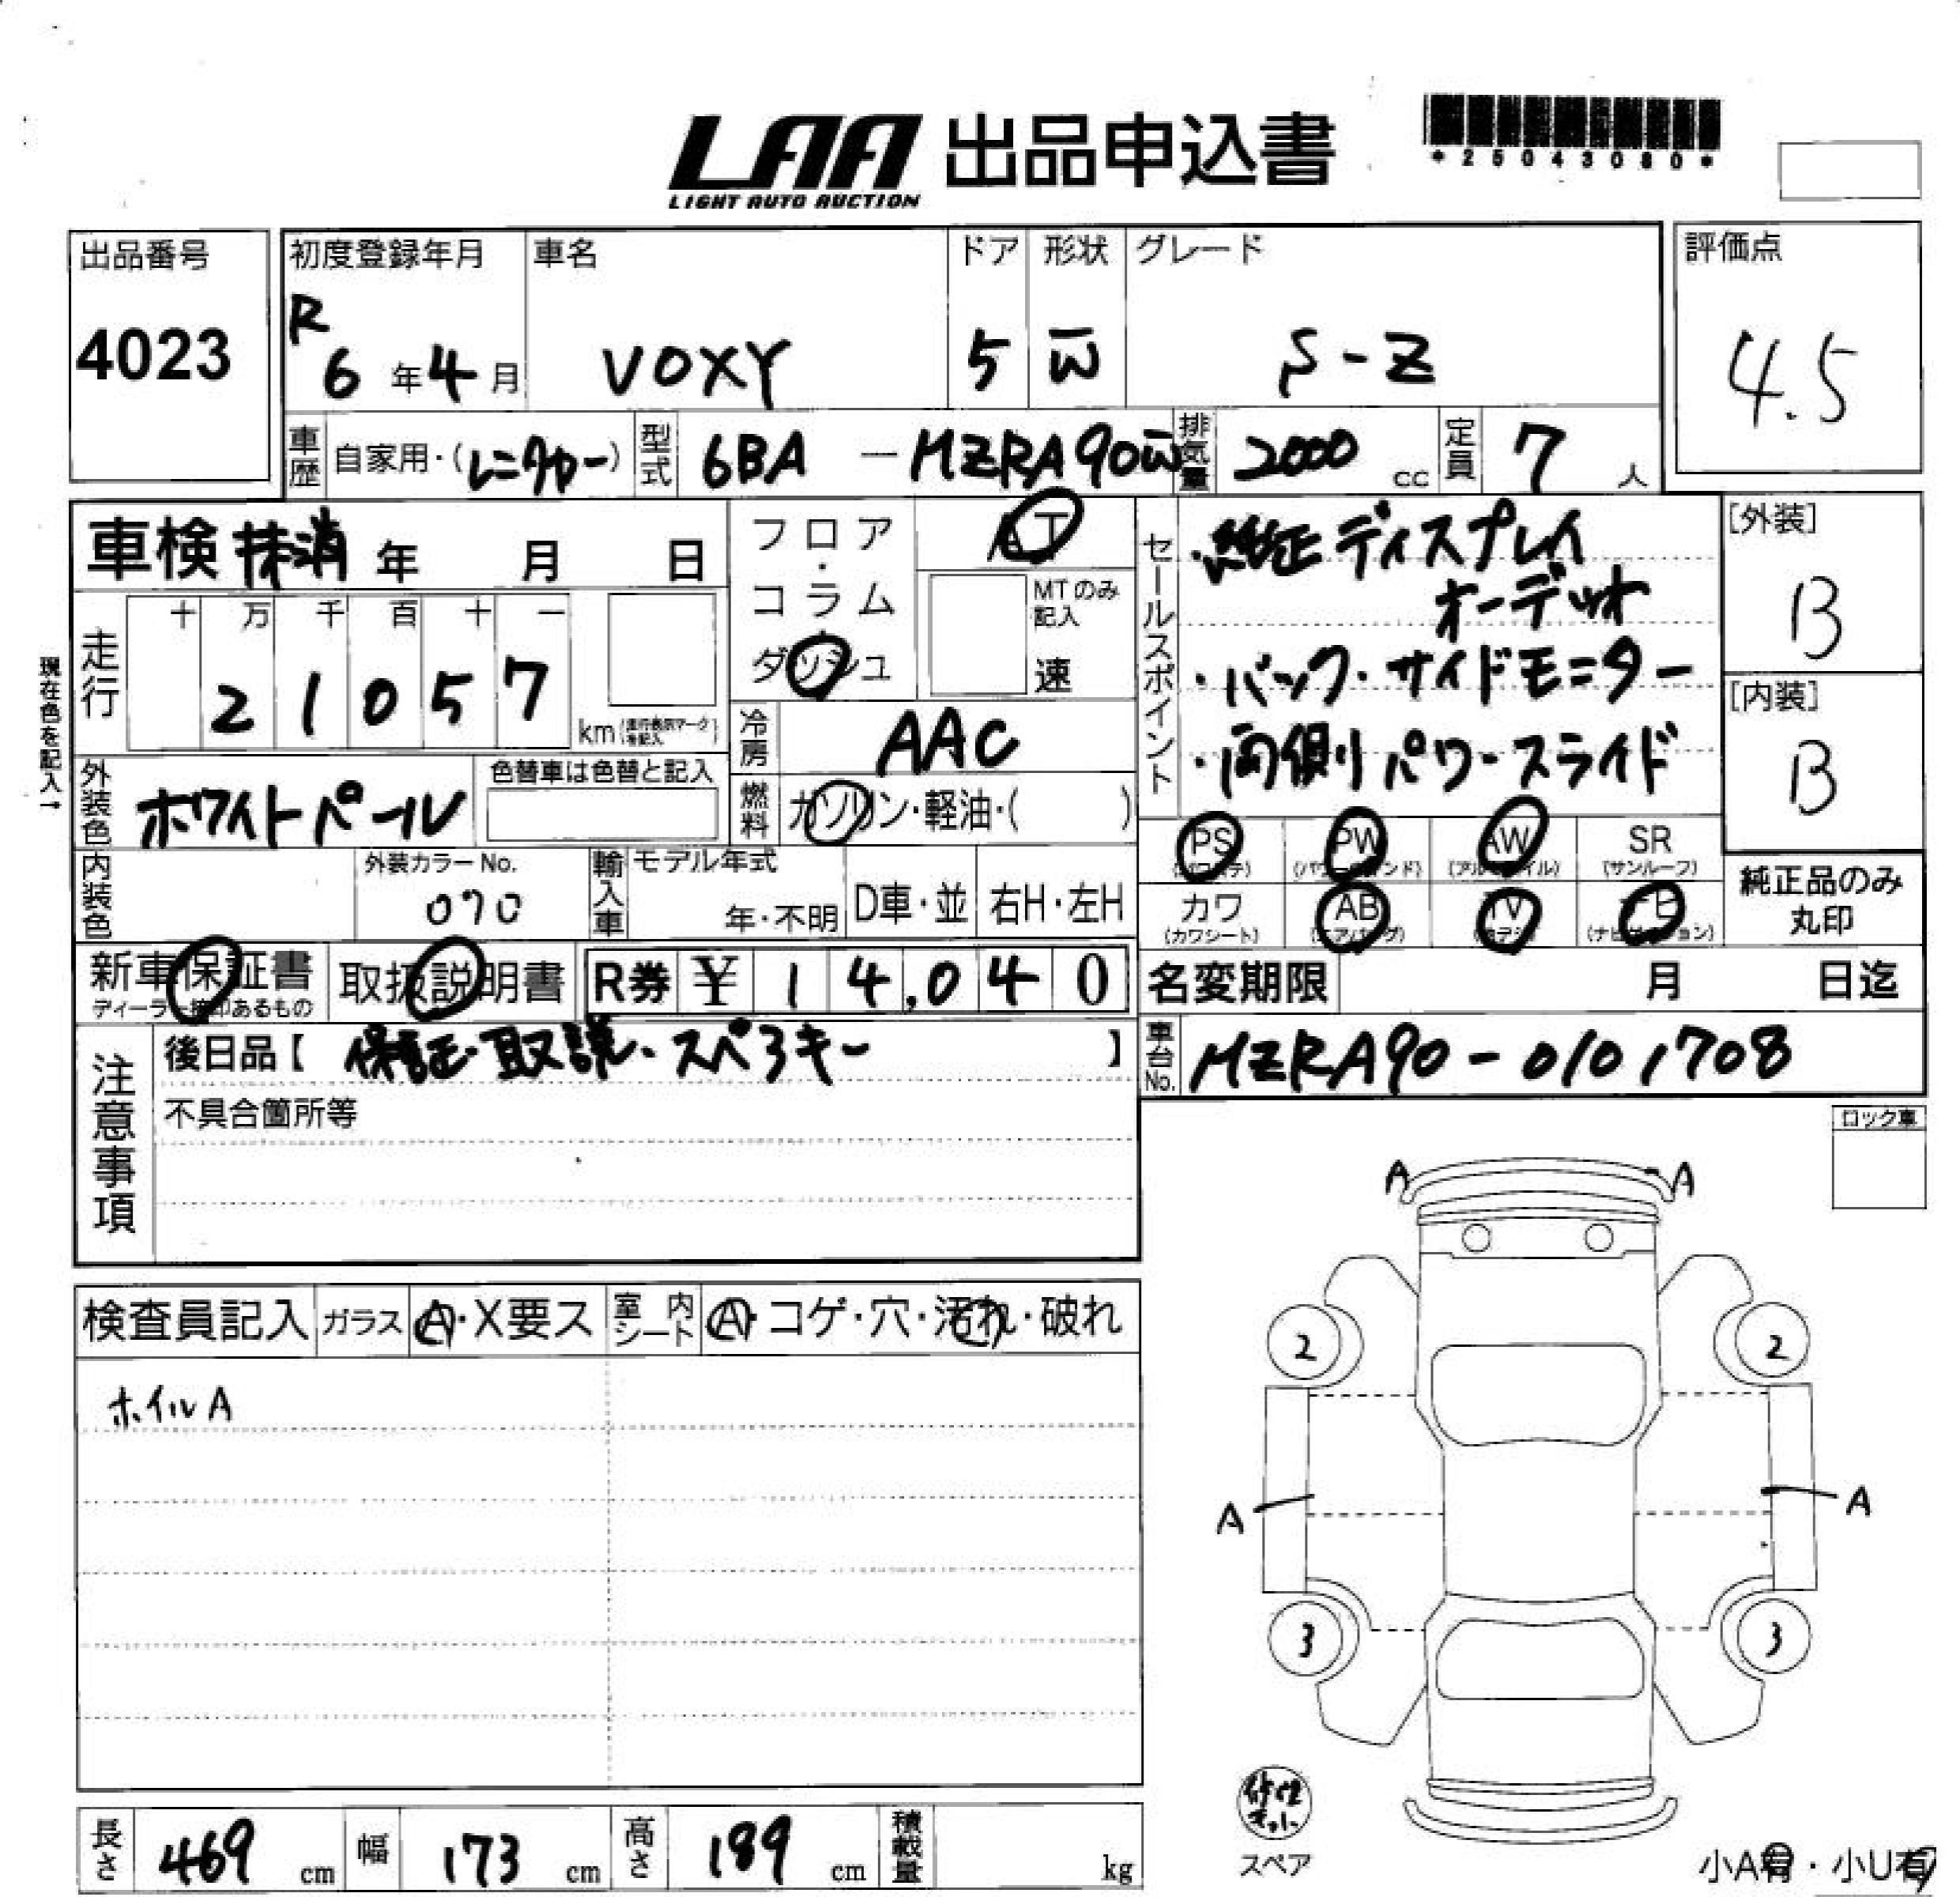 LAA 出品申込書
LIGHT AUTO AUCTION
*25043080*
出品番号 初度登録年月 車名 ドア 形状 グレード 評価点
4023 R6年4月 VOXY 5 W S-Z 4.5
車歴 自家用・(レンタカー) 型式 6BA - MZRA90W 排気量 2000 cc 定員 7 人
車検 抹消 年 月 日
フロア・コラム・ダッシュ AT
MTのみ記入 速
現在色を記入→
走行 十 万 千 百 十 一
2 1 0 5 7 km(走行表示マークを記入)
冷房 AAC
外装色 ホワイトパール 色替車は色替と記入
燃料 ガソリン・軽油・( )
セールスポイント
・純正ディスプレイ
オーディオ
・バック・サイドモニター
・両側パワースライド
[外装]
B
[内装]
B
内装色 外装カラーNo. 070 輸入車 モデル年式 年・不明 D車・並 右H・左H
PS PW AW SR
(パワステ) (パワーウインド) (アルミホイル) (サンルーフ)
カワ AB TV ナビ
(カワシート) (エアバッグ) (ナビゲーション)
純正品のみ
丸印
新車保証書 取扱説明書 R券 ¥ 1 4,0 4 0
ディーラー捺印あるもの
名変期限 月 日迄
車台No. MZRA90-0101708
注意事項
後日品【 保証・取説・スペアキー 】
不具合箇所等
ロック車
A A
2 2
A A
3 3
検査員記入 ガラス A・X要ス 室内シート A・コゲ・穴・汚れ・破れ
ホイルA
修理キット
スペア
小A有・小U有
長さ 469 cm 幅 173 cm 高さ 189 cm 積載量 kg